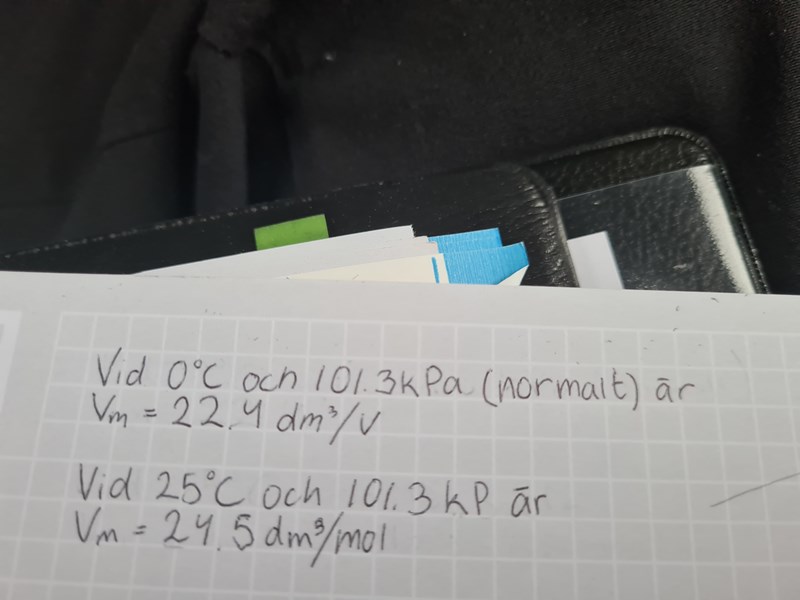 Vid 0°C och 101.3kPa (normalt) är
Vm = 22.4 dm³/V
Vid 25°C och 101.3 kP är
Vm = 24.5 dm³/mol